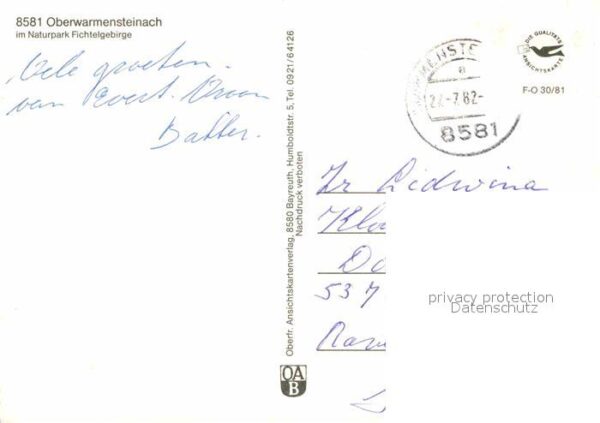 8581 Oberwarmensteinach
im Naturpark Fichtelgebirge
Vele groeten.
van Evert.
Bakker.
Oberfr. Ansichtskartenverlag, 8580 Bayreuth, Humboldtstr. 5, Tel. 0921/64126
Nachdruck verboten
OA
B
MENSTE
a
22-7.82-
8581
DIE QUALITÄTS
ANSICHTSKARTE
F-O 30/81
Zr Lidwina
Klo
Do
537
privacy protection
Datenschutz